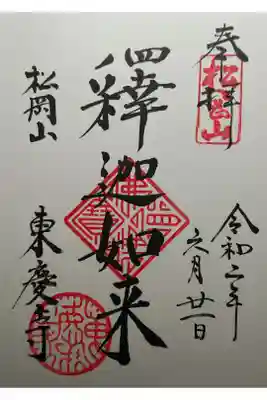 奉拝
松岡山
令和二年
六月廿一日
釋迦如来
松岡山
東慶寺